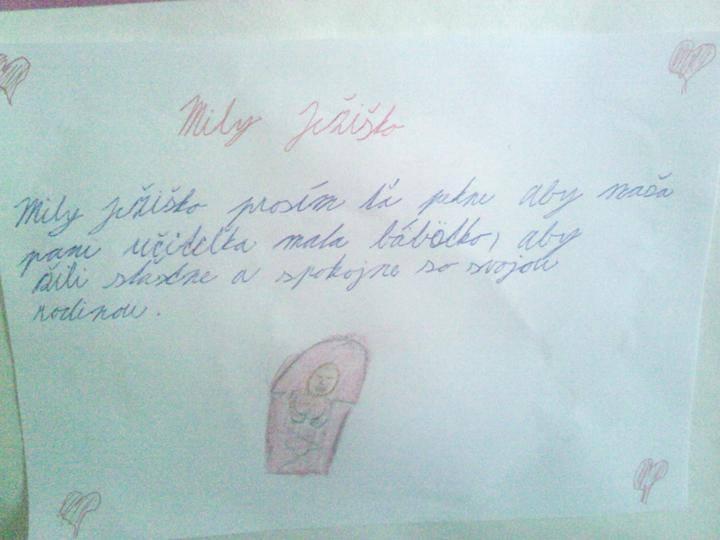 Mily Ježiško
Mily Ježiško prosím ťa pekne aby naša
pani učiteľka mala bábätko, aby
žili stastne a spokojne so svojou
rodinou.